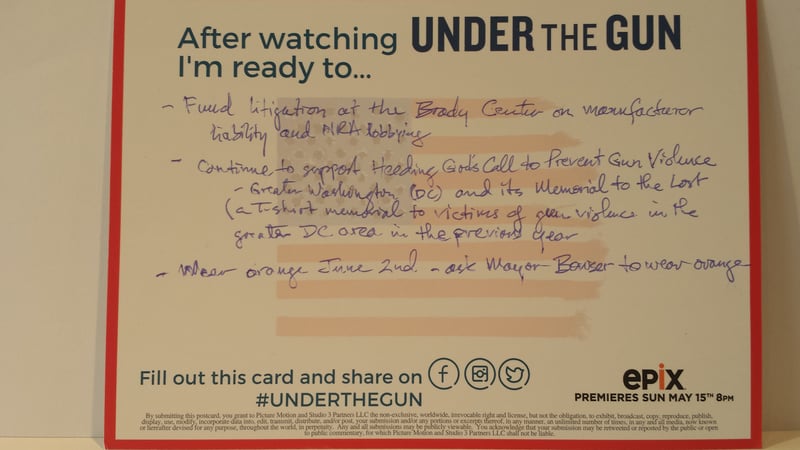 After watching UNDER THE GUN
I'm ready to...
- Fund litigation at the Brady Center on manufacturer
liability and NRA lobbying
- Continue to support Heeding God's Call to Prevent Gun Violence
- Greater Washington (DC) and its Memorial to the Lost
(a T-shirt memorial to victims of gun violence in the
greater DC area in the previous year
- Wear orange June 2nd - ask Mayor Bowser to wear orange
Fill out this card and share on
#UNDERTHEGUN
epix
PREMIERES SUN MAY 15TH 8PM
By submitting this postcard, you grant to Picture Motion and Studio 3 Partners LLC the non-exclusive, worldwide, irrevocable right and license, but not the obligation, to exhibit, broadcast, copy, reproduce, publish,
display, use, modify, incorporate data into, edit, transmit, distribute, and/or post, your submission and/or any portions or excerpts thereof, in any manner, an unlimited number of times, in any and all media, now known
or hereafter devised for any purpose, throughout the world, in perpetuity. Any and all submissions may be publicly viewable. You acknowledge that your submission may be retweeted or reported by the public or open
to public commentary, for which Picture Motion and Studio 3 Partners LLC shall not be liable.